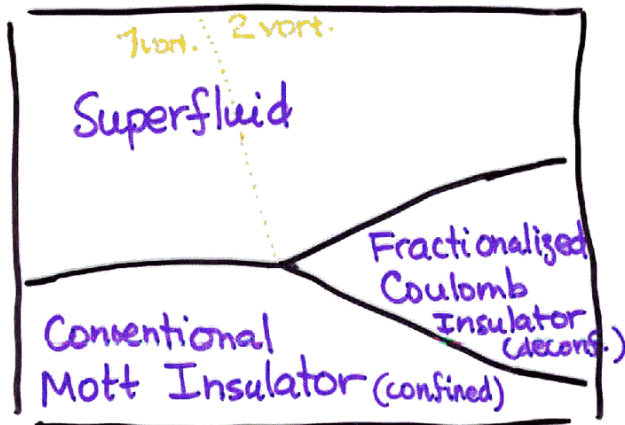 1vort. 2 vort.
Superfluid
Fractionalized
Coulomb
Insulator
(deconf.)
Conventional
Mott Insulator (confined)